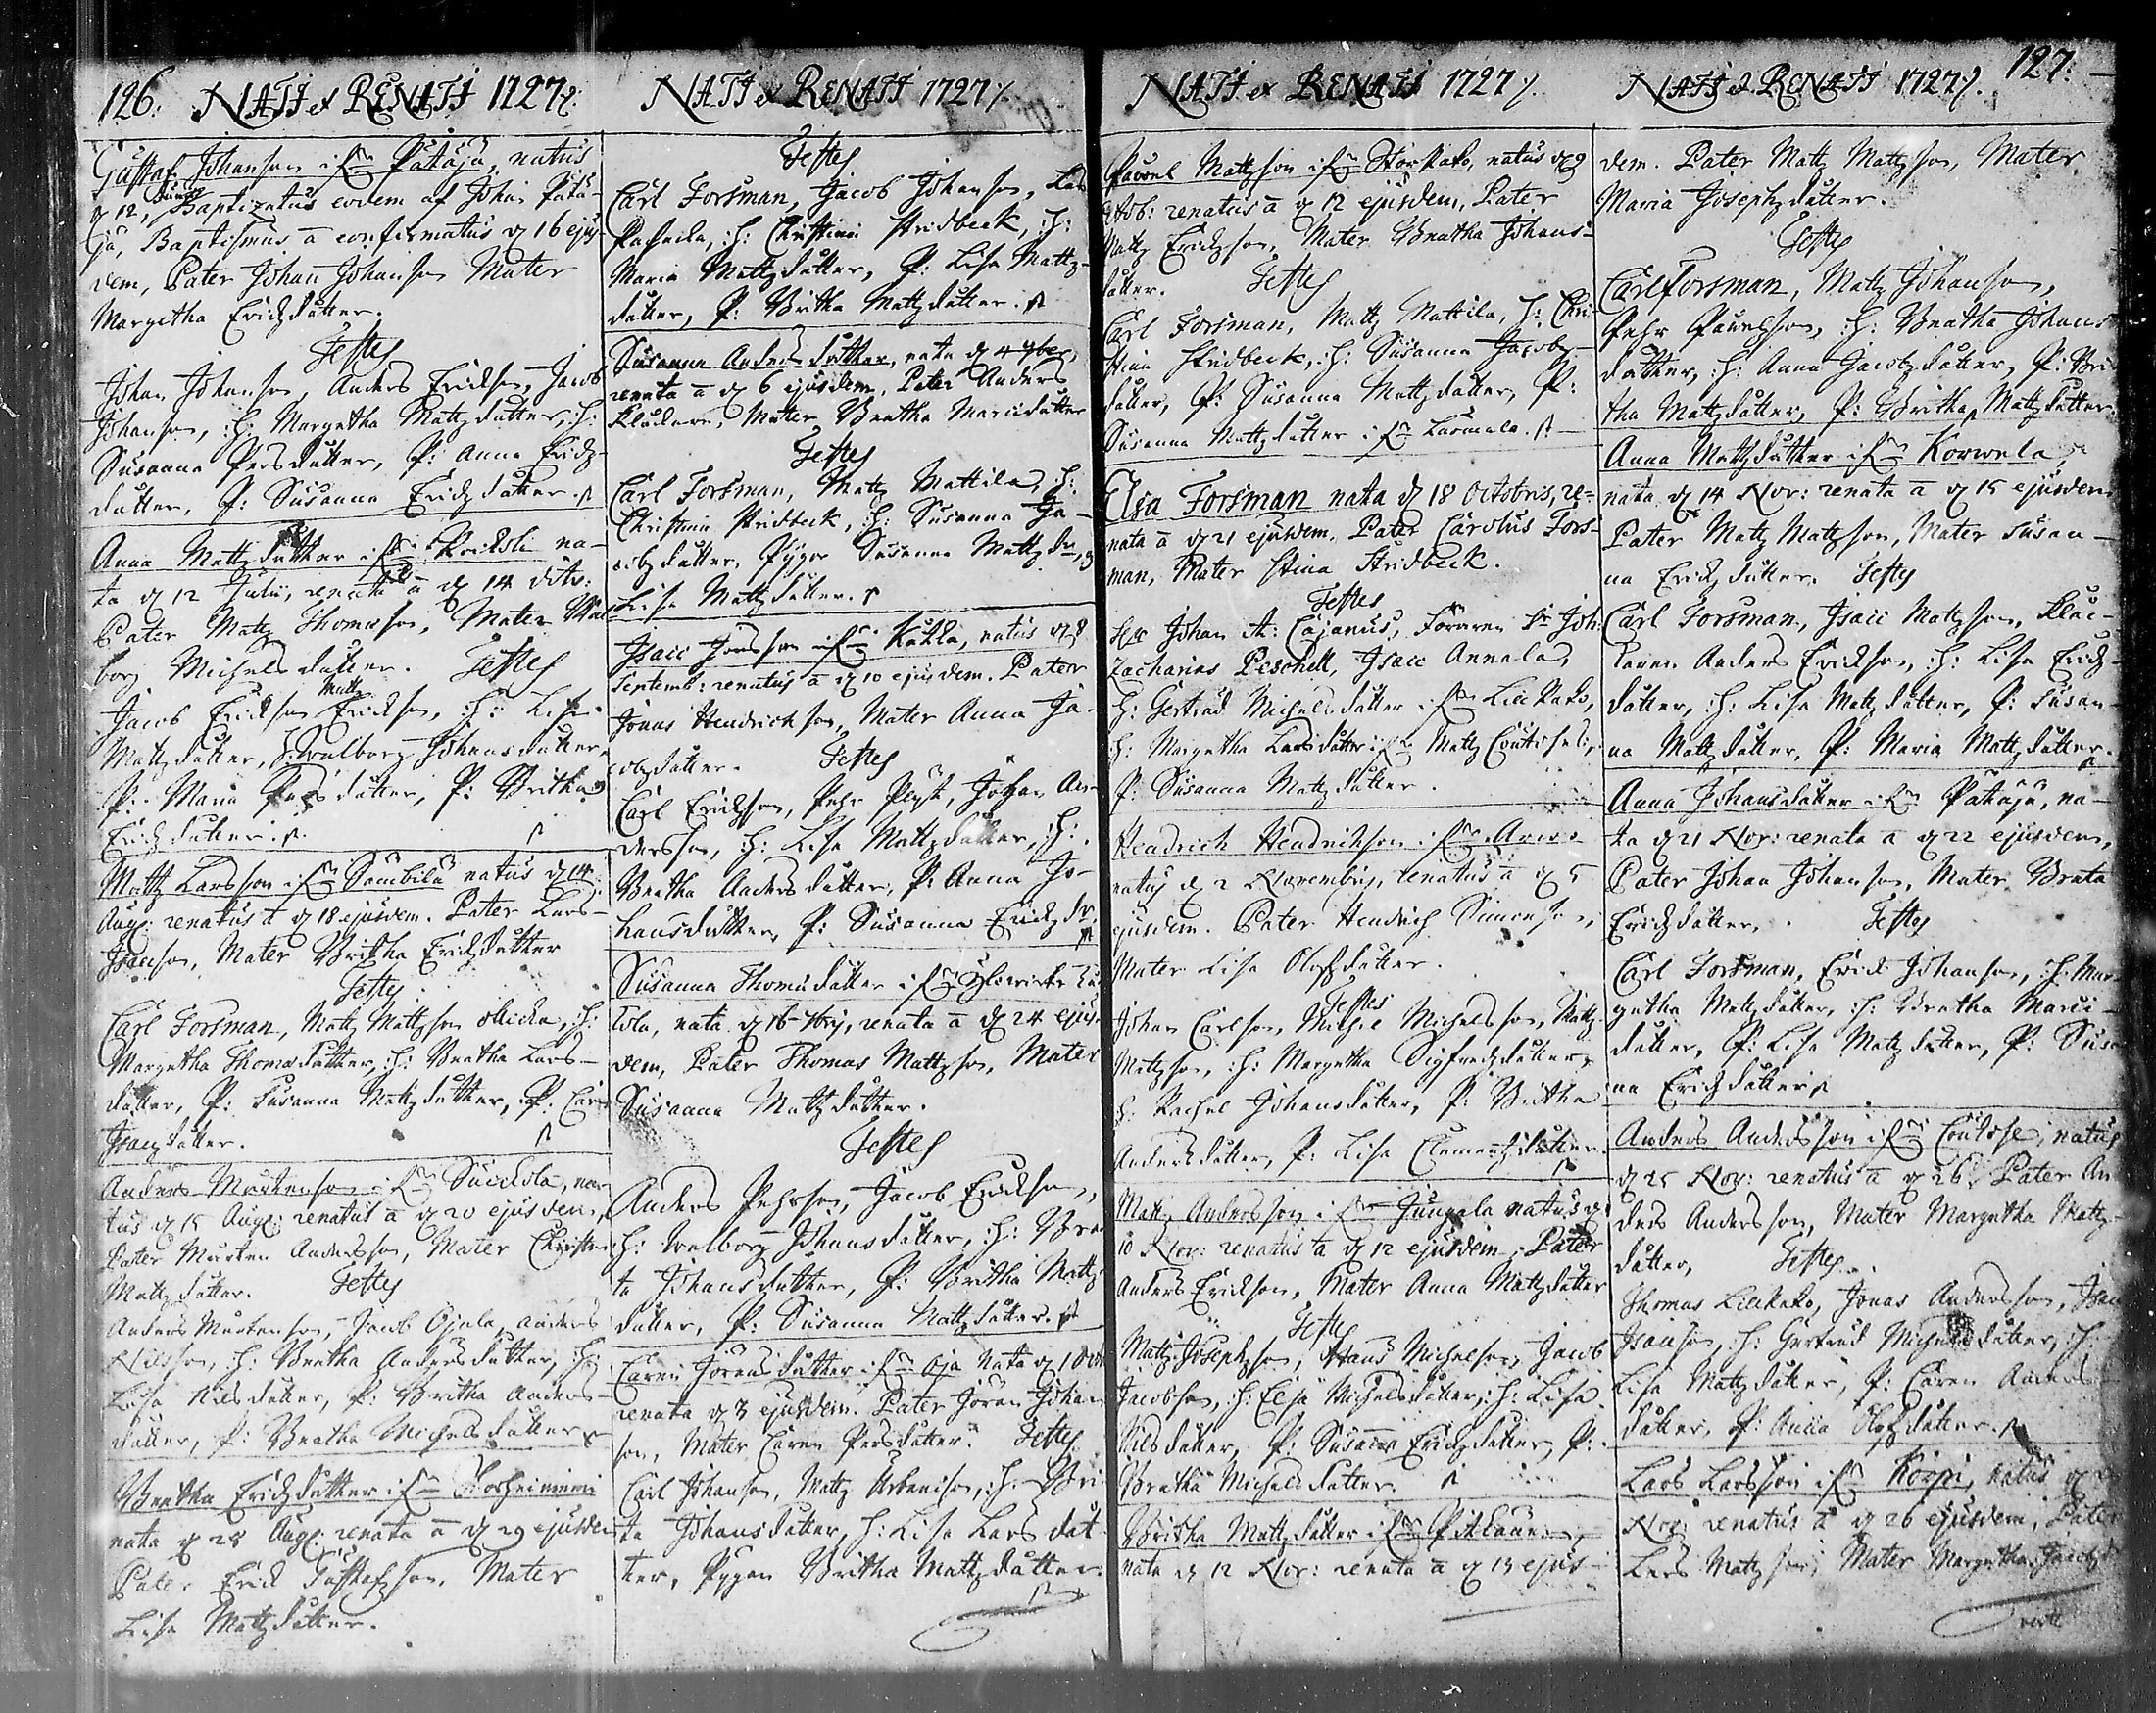 126. NATI et RENATI 1727
Gustaf Johanson i fr Påtåja, natus
d 12, Junii Baptizatus eodem af Johan Påtå-
ja, Baptismus a confirmatus d 16 ejus-
dem, Pater Johan Johanson Mater
Margetha Erichzdåtter.
Testes
Johan Johanson Anders Erickson, Jacob
Johanson, :h: Margetha Mattzdåtter, :h:
Susanna Persdåtter, P: Anna Erichz-
dåtter, P: Susanna Erichzdåtter.
Anna Mattzdåtter i fr na-
ta d 12 Julii, renata a d 14 dito:
Pater Mattz Thomasson, Mater Wal-
borg Michelsdåtter. Testes
Jacob Erickson Mattz Erickson, :h: Lisa
Mattzdåtter, :h: Walborg Johansdåtter,
P: Maria Persdåtter, P: Britha
Erichzdåtter.
Mattz Larsson i fr natus d 14
Aug: renatus a d 18 ejusdem. Pater Lars
Isacson, Mater Britha Erichzdåtter
Testes
Carl Forsman, Mattz Mattzson :h:
Margetha Thomædåtter, :h: Beatha Lars-
dåtter, P: Susanna Mattzdåtter, P: Carin
Isaczdåtter.
Anders Mårtenson i fr Suckola, na-
tus d 15 Aug: renatus a d 20 ejusdem,
Pater Mårten Andersson, Mater Christin
Mattzdåtter. Testes
Anders Mårtenson, Jacob Ojala, Anders
Nilsson, :h: Beatha Andersdåtter, :h:
Lisa Nilsdåtter, P: Britha Anders-
dåtter, P: Beatha Michelsdåtter
Beatha Erichzdåtter i fr
nata d 28 Aug: renata a d 29 ejusdem
Pater Erick Gustafson, Mater
Lisa Mattzdåtter.
NATI et RENATI 1727
Testes
Carl Forsman, Jacob Johanson, Lars
:h: Christina Stridbeck, :h:
Maria Mattzdåtter, P: Lisa Mattz-
dåtter, P: Britha Mattzdåtter.
Susanna Andersdåtter, nata d 4 7bris,
renata a d 6 ejusdem, Pater Anders
Mater Beatha Marcidåtter
Testes
Carl Forsman, Mattz Mattila, :h:
Christina Stridbeck, :h: Susanna Ja-
cobzdåtter, Pigor Susanna Mattzdr,
Lisa Mattzdåtter.
Isaac Jonsson i fr natus d 8
Septemb: renatus a d 10 ejusdem. Pater
Jonas Hendrickson, Mater Anna Ja-
cobzdåtter. Testes
Carl Erickson, Pehr Johan An-
dersson, :h: Lisa Mattzdåtter, :h:
Beatha Andersdåtter, P: Anna Jo-
hansdåtter, P: Susanna Erichzdr.
Susanna Thomædåtter i fr
nata d 16 7bris, renata a d 24 ejus-
dem, Pater Thomas Mattzson, Mater
Susanna Mattzdåtter.
Testes
Anders Pehrson, Jacob Erickson,
:h: Walborg Johansdåtter, :h: Brea
ta Johansdåtter, P: Britha Mattz
dåtter, P: Susanna Mattzdåtter.
Caren Jöransdåtter i fr Oja nata d 1 Octob
renata d 3 ejusdem. Pater Jöran Johan
son, Mater Caren Persdåtter. Testes
Carl Johanson, Mattz Urbanison, :h: Bri-
ta Johansdåtter, :h: Lisa Larsdåt
ter, Pigan Britha Mattzdåtter.
NATI et RENATI 1727
Påvel Mattzson i fr Storkako, natus d 9
Octob: renatus a d 12 ejusdem, Pater
Mattz Erickson, Mater Beatha Johans-
dåtter. Testes
Carl Forsman, Mattz Mattila, :h: Chri-
stina Stridbeck, :h: Susanna Jacobz-
dåtter, P: Susanna Mattzdåtter, P:
Susanna Mattzdåtter i fr Lasmala.
Elsa Forsman nata d 18 Octobris, re-
nata a d 21 ejusdem. Pater Carolus Fors-
man, Mater Stina Stridbeck.
Testes
Johan Cajanus, Joh:
Zacharias Peschell, Isaac Annala,
:h: Gertrud Michelsdåtter i fr Liikkako,
:h: Margetha Larsdåtter i fr
P: Susanna Mattzdåtter.
Hendrich Hendrickson i fr
natus d 2 Novembris, renatus a d 5
ejusdem. Pater Hendrich Simonson,
Mater Lisa Olofzdåtter.
Testes
Johan Carlson, Michel Michelsson, Mattz
Mattzson, :h: Margetha Sigfredzdåtter,
:h: Rachel Johansdåtter, P: Britha
Andersdåtter, P: Lisa Clementzdåtter.
Mattz Andersson i fr Jungala natus d
10 Nov: renatus a d 12 ejusdem, Pater
Anders Erickson, Mater Anna Mattzdåtter
Testes
Mattz Josephzson, Hans Michelson, Jacob
Jacobson, :h: Elsa Michelsdåtter, :h: Lisa
Nilsdåtter, P: Susanna Erichzdåtter, P:
Breatha Michelsdåtter.
Britha Mattzdåtter i fr
nata d 12 Nov: renata a d 13 ejus-
NATI et RENATI 1727. 127.
dem. Pater Mattz Mattzson, Mater
Maria Josephzdåtter.
Testes
Carl Forsman, Mattz Johanson,
Pehr Påvelsson, :h: Breatha Johans
dåtter, :h: Anna Jacobzdåtter, P: Bri
tha Mattzdåtter, P: Britha Mattzdåtter.
Anna Mattzdåtter i fr Korwela,
nata d 14 Nov: renata a d 15 ejusdem
Pater Mattz Mattzson, Mater Susan-
na Erichzdåtter. Testes
Carl Forsman, Isaac Mattzson, Kläc-
karen Anders Erickson, :h: Lisa Erichz-
dåtter, :h: Lisa Mattzdåtter, P: Susan-
na Mattzdåtter, P: Maria Mattzdåtter.
Anna Johansdåtter i fr Påtåja, na-
ta d 21 Nov: renata a d 22 ejusdem,
Pater Johan Johanson, Mater Breata
Erichzdåtter. Testes
Carl Forsman, Erick Johanson, :h: Mar
getha Mattzdåtter, :h: Breatha Marci-
dåtter, P: Lisa Mattzdåtter, P: Susa
na Erichzdåtter
Anders Andersson i fr natus
d 25 Nov: renatus a d 26 Pater An
ders Andersson, Mater Margetha Mattz-
dåtter, Testes
Thomas Liikkako, Jonas Andersson, Isac
Isacson, :h: Gertrud Michelsdåtter, :h:
Lisa Mattzdåtter, P: Caren Anders
dåtter, P: Anna Olofzdåtter.
Lars Larsson i fr Korpi, natus d
Nov: renatus a d 26 ejusdem, Pater
Lars Mattzson, Mater Margetha Jacobzd
verte